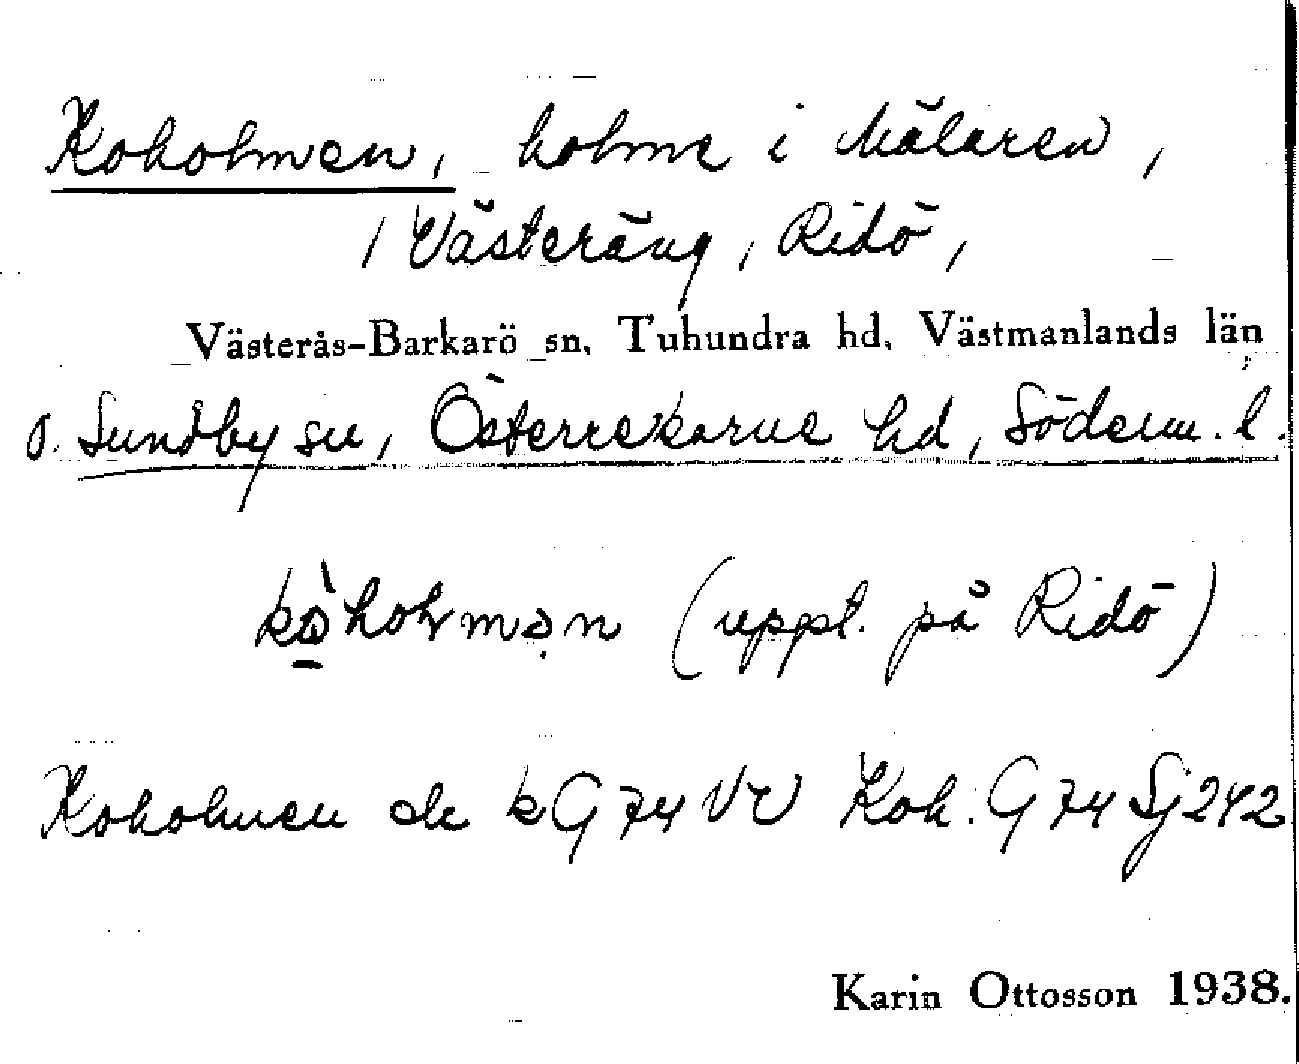 Koholmen, holme i Mälaren,
/ Västeräng, Ridö,
Västerås-Barkarö sn, Tuhundra hd, Västmanlands län
o. Sundby sn, Österrekarne hd, Söderm. l.
kòhoɬmən (uppt. på Ridö)
Koholmen ek kG74 VV Koh: G74 Sj242
Karin Ottosson 1938.